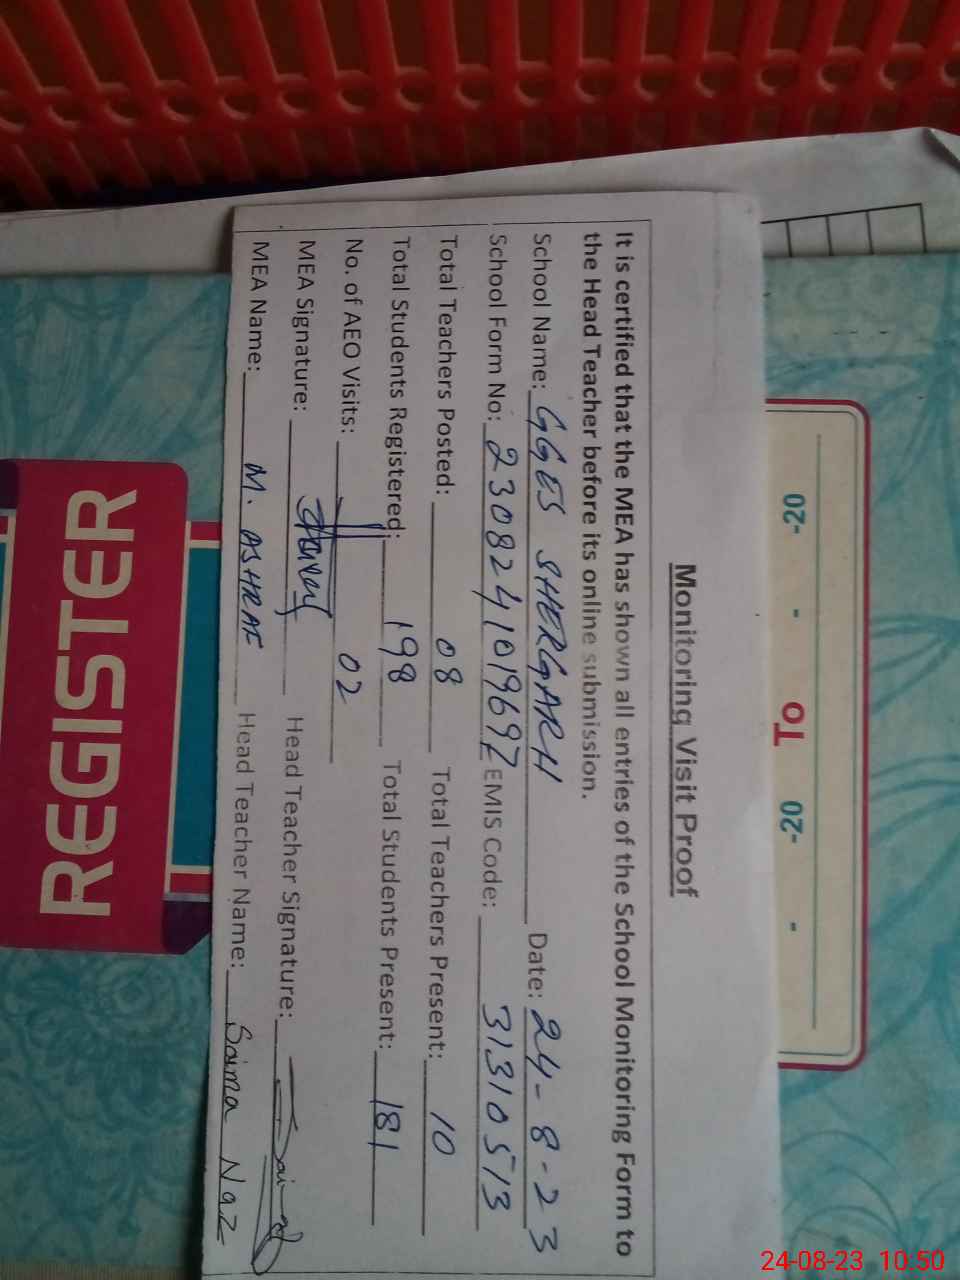 Monitoring Visit Proof
It is certified that the MEA has shown all entries of the School Monitoring Form to
the Head Teacher before its online submission.
School Name: GGES SHERGARH Date: 24-8-23
School Form No: 2308241019697 EMIS Code: 31310513
Total Teachers Posted: 08 Total Teachers Present: 10
Total Students Registered: 198 Total Students Present: 181
No. of AEO Visits: 02
MEA Signature: Head Teacher Signature:
MEA Name: M. ASHRAF Head Teacher Name: Saima Naz
-20- - To -20- -
REGISTER
24-08-23 10:50